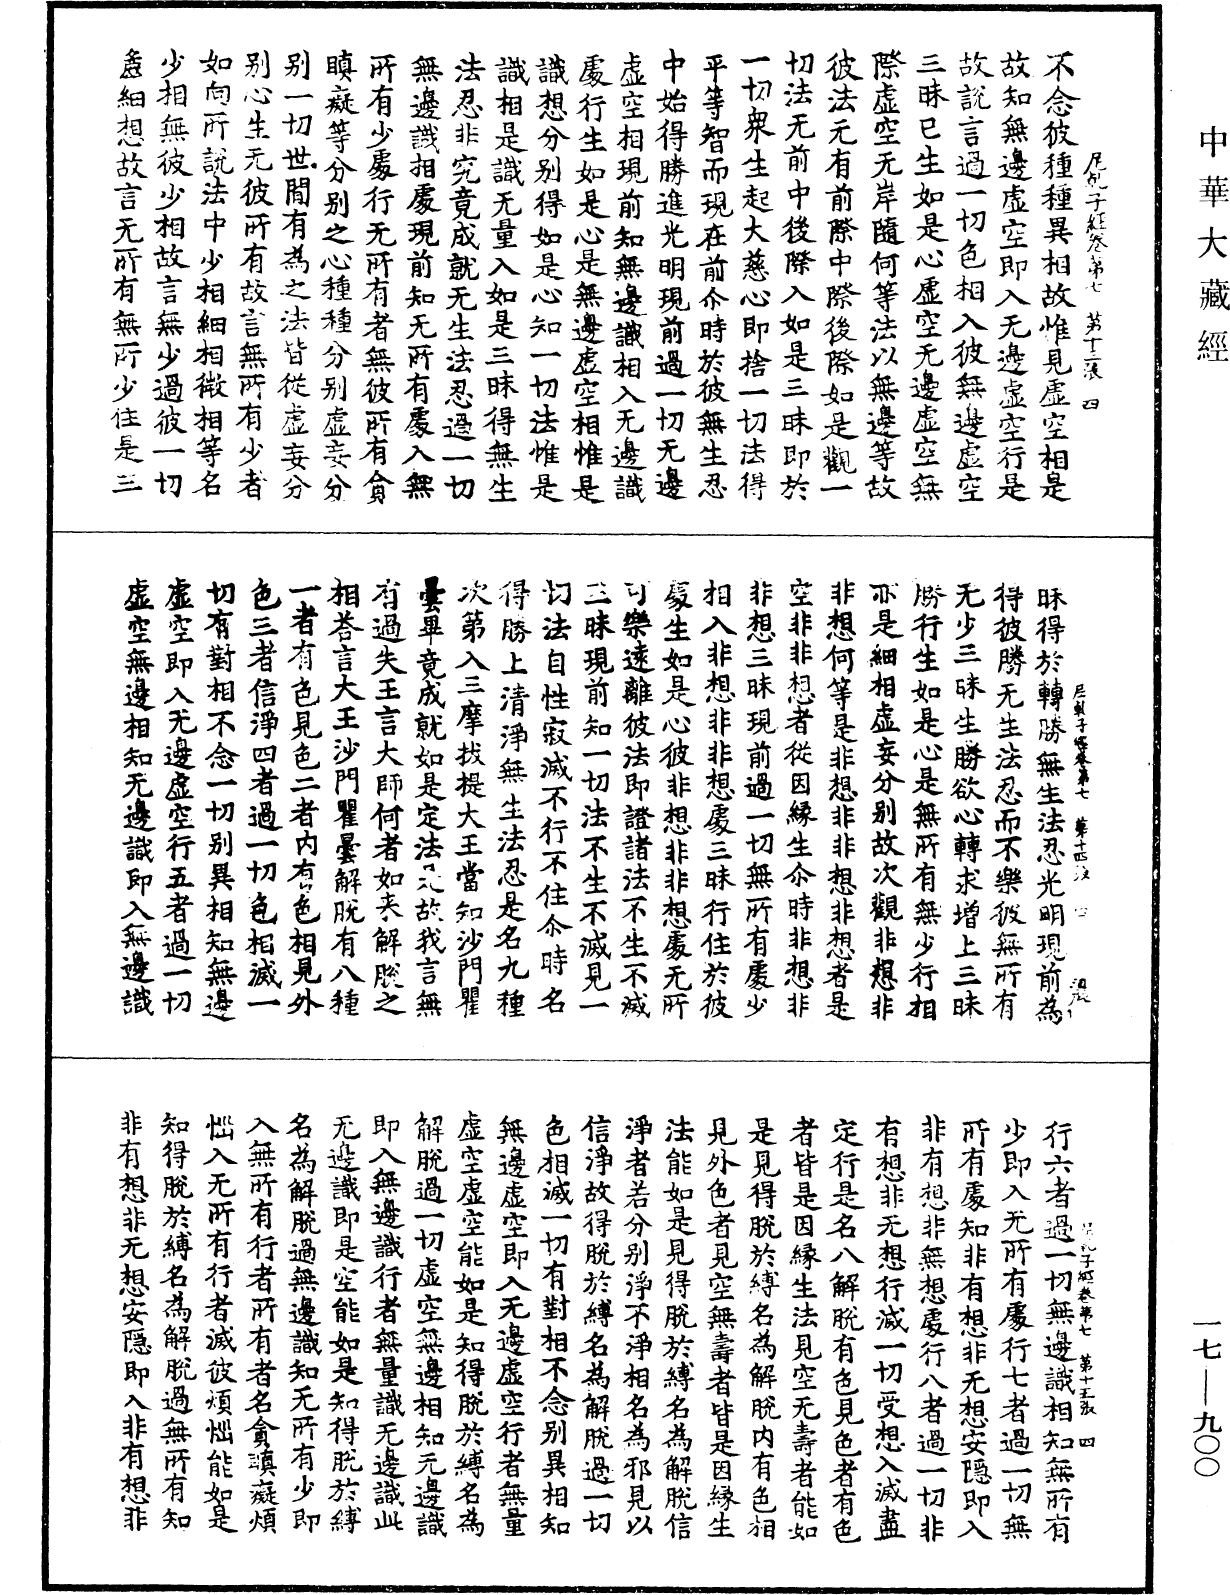 中華大藏經
尼乾子經卷第七　第十三張　四
不念彼種種異相故惟見虛空相是
故知無邊虛空即入无邊虛空行是
故說言過一切色相入彼無邊虛空
三昧已生如是心虛空无邊虛空無
際虛空无岸隨何等法以無邊等故
彼法无有前際中際後際如是觀一
切法无前中後際入如是三昧即於
一切衆生起大慈心即捨一切法得
平等智而現在前尒時於彼無生忍
中始得勝進光明現前過一切无邊
虛空相現前知無邊識相入无邊識
處行生如是心是無邊虛空相惟是
識想分别得如是心知一切法惟是
識相是識无量入如是三昧得無生
法忍非究竟成就无生法忍過一切
無邊識相處現前知无所有處入無
所有少處行无所有者無彼所有貪
瞋癡等分别之心種種分别虛妄分
别一切世間有為之法皆從虛妄分
别心生无彼所有故言無所有少者
如向所說法中少相細相微相等名
少相無彼少相故言無少過彼一切
麁細想故言无所有無所少住是三
尼乾子經卷第七　第十四張
昧得於轉勝無生法忍光明現前為
得彼勝无生法忍而不樂彼無所有
无少三昧生勝欲心轉求增上三昧
勝行生如是心是無所有無少行相
亦是細相虛妄分别故次觀非想非
非想何等是非想非非想非想者是
空非非想者從因緣生尒時非想非
非想三昧現前過一切無所有處少
相入非想非非想處三昧行住於彼
處生如是心彼非想非非想處无所
可樂遠離彼法即證諸法不生不滅
三昧現前知一切法不生不滅見一
切法自性寂滅不行不住尒時名
得勝上清淨無生法忍是名九種
次第入三摩拔提大王當知沙門瞿
曇畢竟成就如是定法是故我言無
有過失王言大師何者如來解脫之
相荅言大王沙門瞿曇解脫有八種
一者有色見色二者内有色相見外
色三者信淨四者過一切色相滅一
切有對相不念一切别異相知無邊
虛空即入无邊虛空行五者過一切
虛空無邊相知无邊識即入無邊識
尼乾子經卷第七　第十五張　四
行六者過一切無邊識相知無所有
少即入无所有處行七者過一切無
所有處知非有想非无想安隱即入
非有想非無想處行八者過一切非
有想非无想行滅一切受想入滅盡
定行是名八解脫有色見色者有色
者皆是因緣生法見空无壽者能如
是見得脫於縛名為解脫内有色相
見外色者見空無壽者皆是因緣生
法能如是見得脫於縛名為解脫信
淨者若分别淨不淨相名為邪見以
信淨故得脫於縛名為解脫過一切
色相滅一切有對相不念别異相知
無邊虛空即入无邊虛空行者無量
虛空虛空能如是知得脫於縛名為
解脫過一切虛空無邊相知无邊識
即入無邊識行者無量識无邊識此
无邊識即是空能如是知得脫於縛
名為解脫過無邊識知无所有少即
入無所有行者所有者名貪瞋癡煩
惱入无所有行者滅彼煩惱能如是
知得脫於縛名為解脫過無所有知
非有想非无想安隱即入非有想非
一七—九〇〇